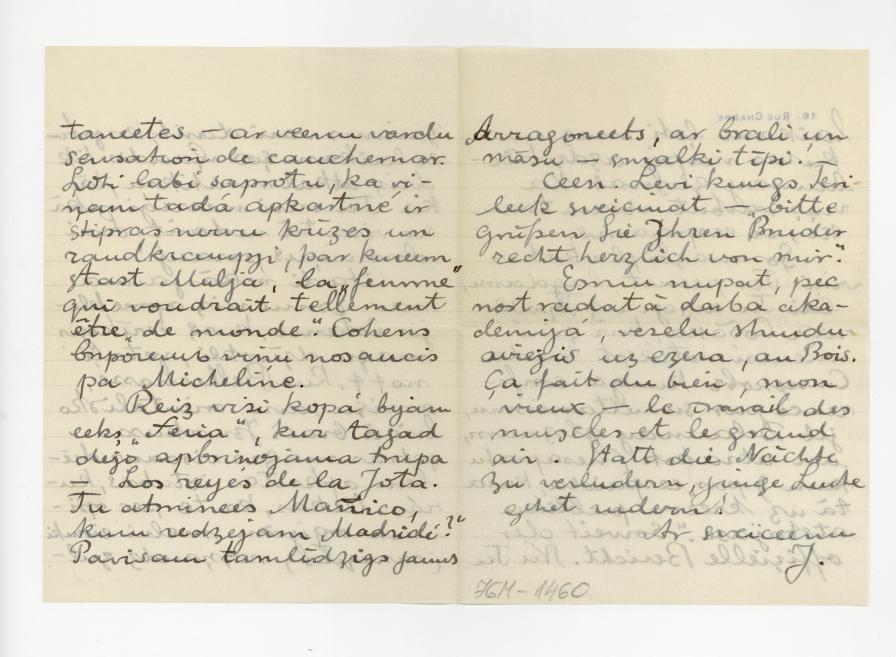 taneetes — ar veenu vardu
sensation de cauchemar.
Ļoti labi saprotu, ka vi-
ņam tadā apkartnē ir
stipras nervu krizes un
raudkrampji, par kureem
stast Mulja, la „femme"
qui voudrait tellement
être „de monde". Cohens
вправил viņu nosaucis
pa Micheline.
Reiz visi kopā bijam
eeks „Feria", kur tagad
dejo apbrinojama trupa
— Los reyes de la Jota.
Tu atminees Mañico,
kuru redzejam Madridē?"
Pavisam tamlīdzigs jauns
Arragoneets, ar brali un
māsu — smalki tipi. —
Ceen. Levi kungs Tevi
leek sveicinat — „bitte
grüßen Sie Ihren Bruder
recht herzlich von mir".
Esmu nupat, pec
nostradatā darba aka-
demijā, veselu stundu
airejis uz ezera, au Bois.
Ça fait du bien, mon
vieux — le travail des
muscles et le grand
air. Statt die Nächte
zu verludern, junge Leute
gehet rudern!
Ar sveiceenu
J.
16, RUE CHA
JGM-1460